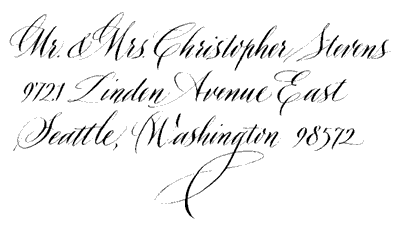 Mr. & Mrs Christopher Stevens
9721 Linden Avenue East
Seattle, Washington 98572